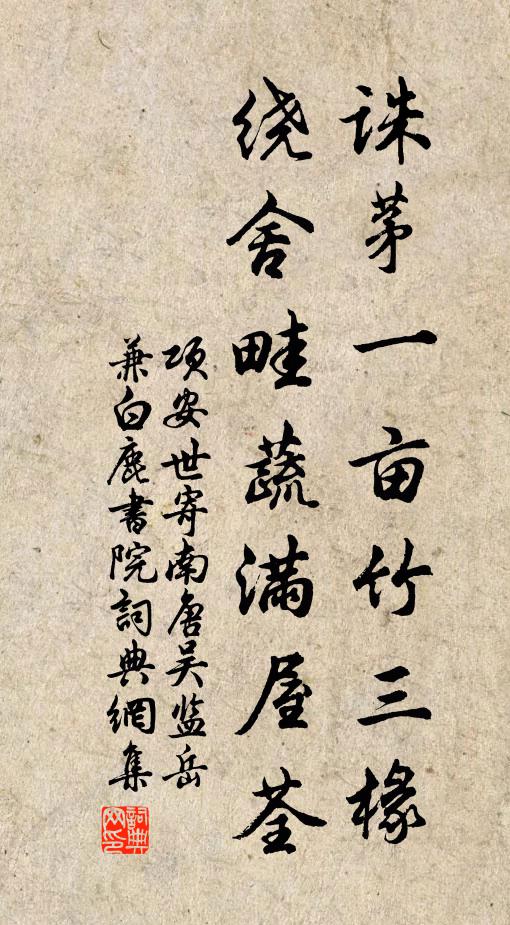 诛茅一亩竹三椽
绕舍畦蔬满屋荃
项安世寄南唐吴监岳
兼白鹿書院詞典網集
詞典网印